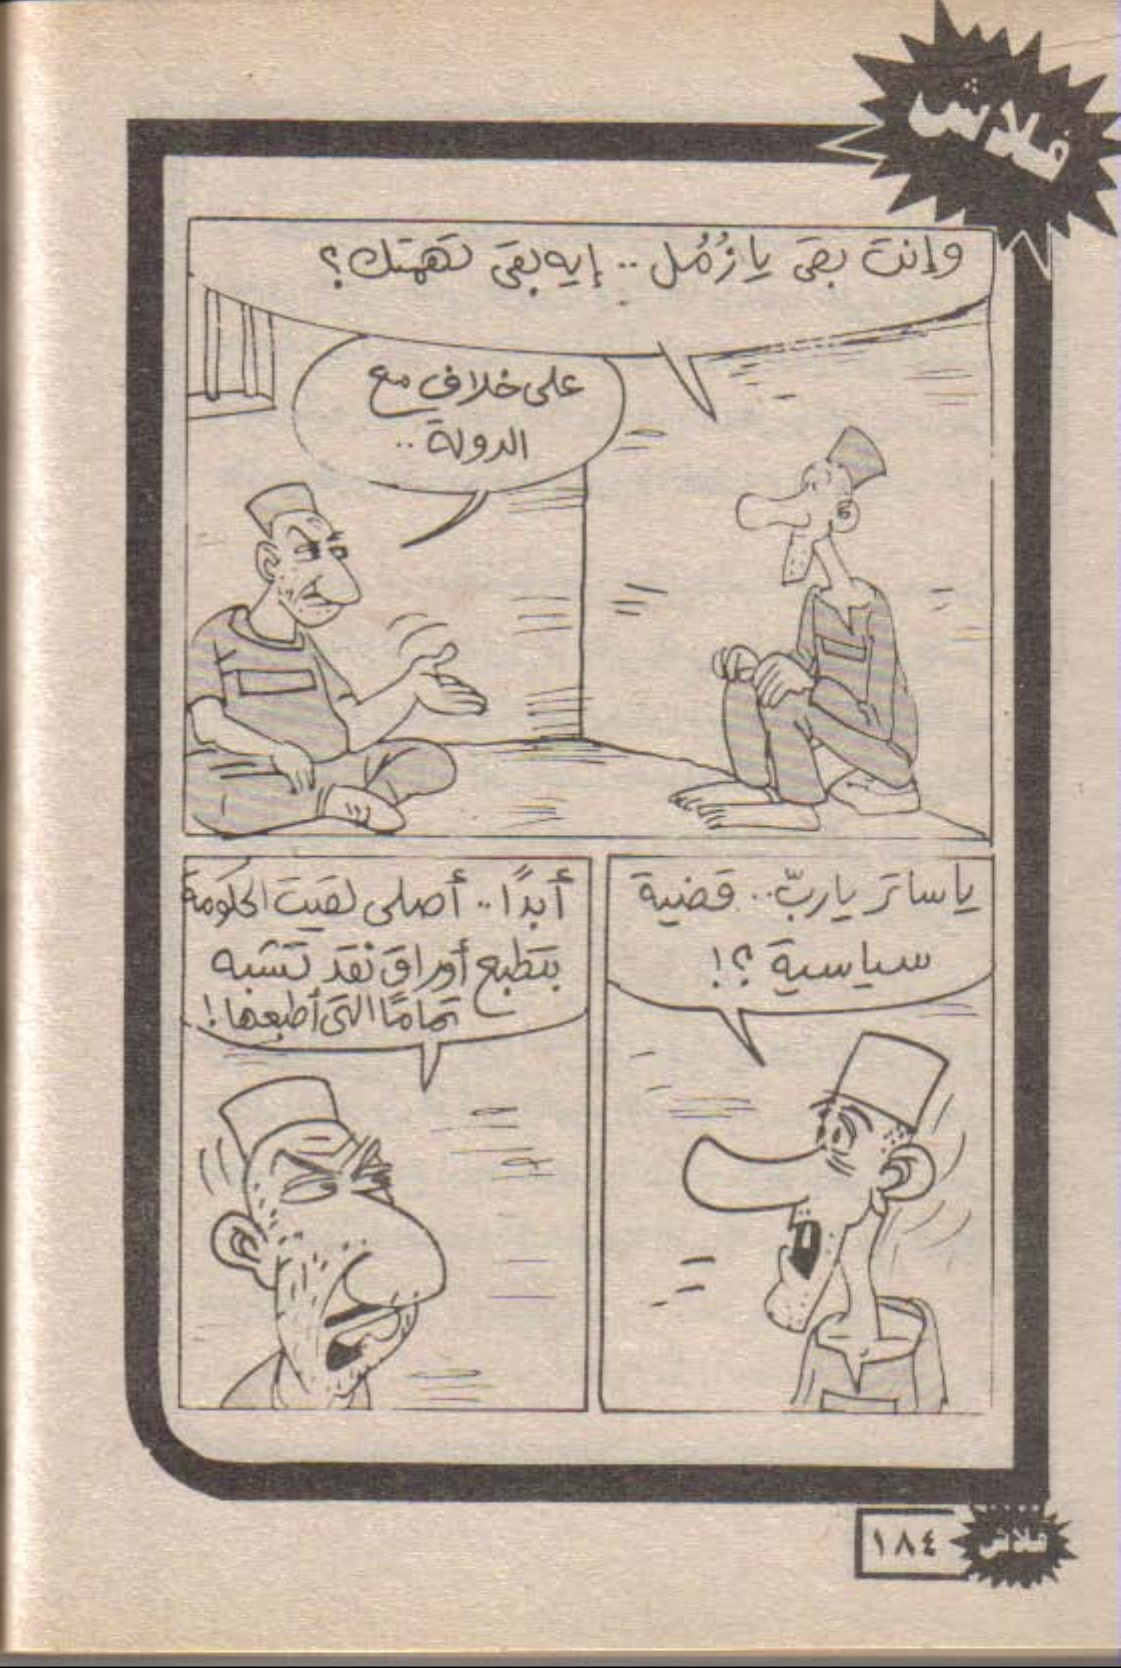 فلاش
وإنت بقى يا زُمُل .. إيه بقى تهمتك؟
على خلاف مع
الدولة ..
يا ساتر يا ربّ .. قضية
سياسية ؟!
أبدًا .. أصلى لقيت الحكومة
بتطبع أوراق نقد تشبه
تمامًا التى أطبعها !
١٨٤
فلاش